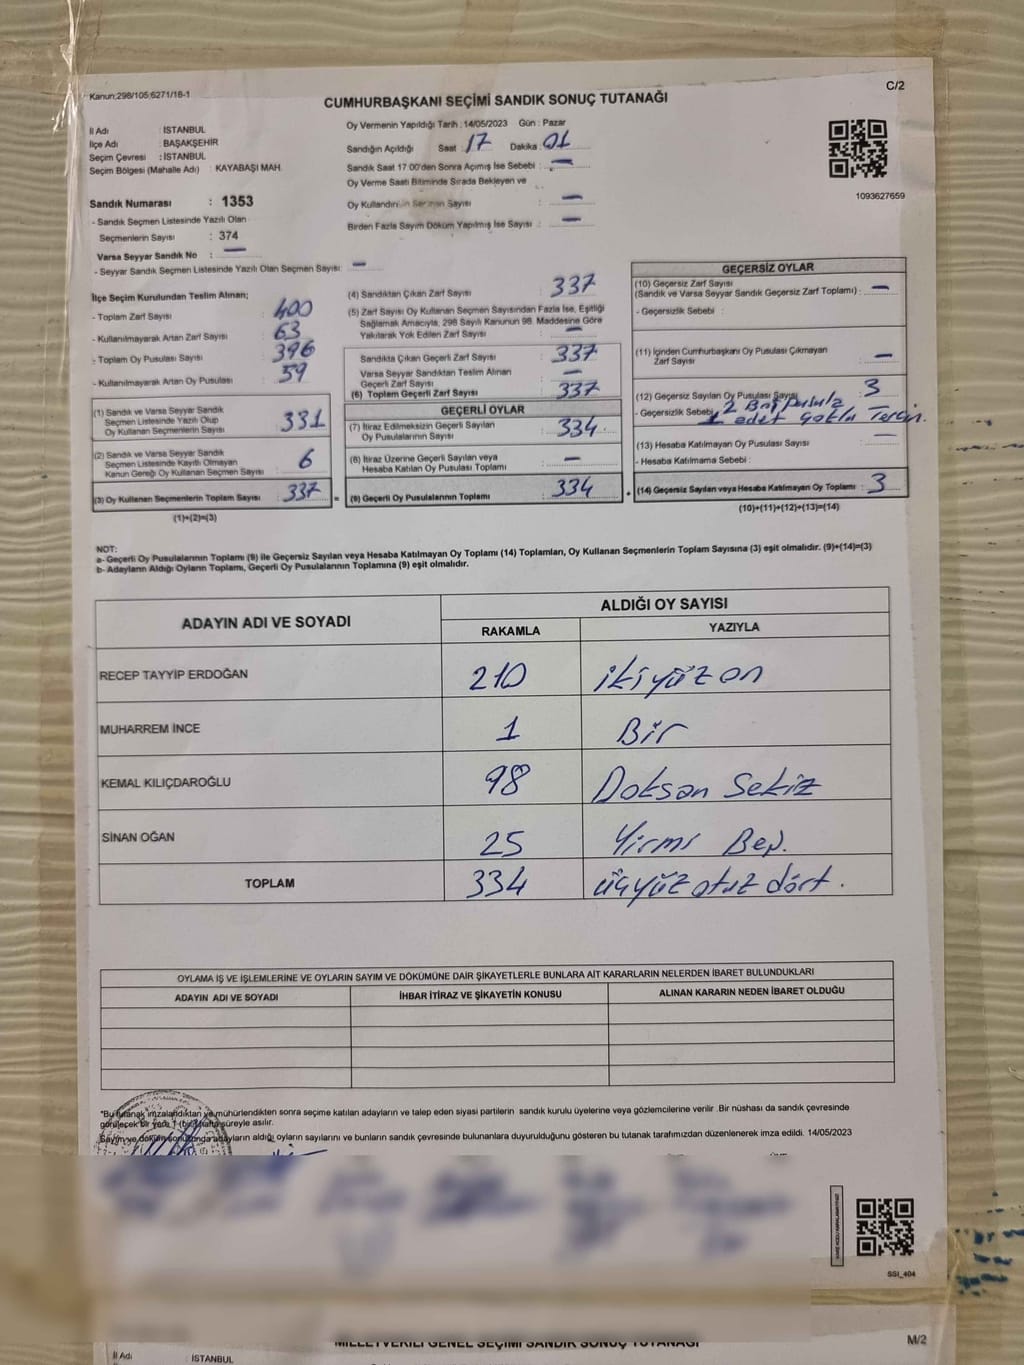 C/2
Kanun:298/105;6271/18-1
CUMHURBAŞKANI SEÇİMİ SANDIK SONUÇ TUTANAĞI
İl Adı : İSTANBUL
İlçe Adı : BAŞAKŞEHİR
Seçim Çevresi : İSTANBUL
Seçim Bölgesi (Mahalle Adı) : KAYABAŞI MAH.
Oy Vermenin Yapıldığı Tarih : 14/05/2023 Gün : Pazar
Sandığın Açıldığı Saat : 17 Dakika : 01
Sandık Saat 17:00'den Sonra Açımış İse Sebebi : —
Oy Verme Saati Bitiminde Sırada Bekleyen ve
Oy Kullandırılan Seçmen Sayısı : —
Birden Fazla Sayım Döküm Yapılmış İse Sayısı : —
1093627659
Sandık Numarası : 1353
- Sandık Seçmen Listesinde Yazılı Olan
Seçmenlerin Sayısı : 374
Varsa Seyyar Sandık No : —
- Seyyar Sandık Seçmen Listesinde Yazılı Olan Seçmen Sayısı: —
İlçe Seçim Kurulundan Teslim Alınan;
- Toplam Zarf Sayısı : 400
- Kullanılmayarak Artan Zarf Sayısı : 63
- Toplam Oy Pusulası Sayısı : 396
- Kullanılmayarak Artan Oy Pusulası : 59
(1) Sandık ve Varsa Seyyar Sandık
Seçmen Listesinde Yazılı Olup
Oy Kullanan Seçmenlerin Sayısı : 331
(2) Sandık ve Varsa Seyyar Sandık
Seçmen Listesinde Kayıtlı Olmayan
Kanun Gereği Oy Kullanan Seçmen Sayısı : 6
(3) Oy Kullanan Seçmenlerin Toplam Sayısı : 337 =
(1)+(2)=(3)
(4) Sandıktan Çıkan Zarf Sayısı : 337
(5) Zarf Sayısı Oy Kullanan Seçmen Sayısından Fazla İse, Eşitliği
Sağlamak Amacıyla, 298 Sayılı Kanunun 98. Maddesine Göre
Yakılarak Yok Edilen Zarf Sayısı : —
Sandıkta Çıkan Geçerli Zarf Sayısı : 337
Varsa Seyyar Sandıktan Teslim Alınan
Geçerli Zarf Sayısı : —
(6) Toplam Geçerli Zarf Sayısı : 337
GEÇERLİ OYLAR
(7) İtiraz Edilmeksizin Geçerli Sayılan
Oy Pusulalarının Sayısı : 334
(8) İtiraz Üzerine Geçerli Sayılan veya
Hesaba Katılan Oy Pusulası Toplamı : —
(9) Geçerli Oy Pusulalarının Toplamı : 334 +
GEÇERSİZ OYLAR
(10) Geçersiz Zarf Sayısı
(Sandık ve Varsa Seyyar Sandık Geçersiz Zarf Toplamı) : —
- Geçersizlik Sebebi :
(11) İçinden Cumhurbaşkanı Oy Pusulası Çıkmayan
Zarf Sayısı : —
(12) Geçersiz Sayılan Oy Pusulası Sayısı : 3
- Geçersizlik Sebebi : 2 Boş pusula
1 adet Çoklu Tercih.
(13) Hesaba Katılmayan Oy Pusulası Sayısı : —
- Hesaba Katılmama Sebebi :
(14) Geçersiz Sayılan veya Hesaba Katılmayan Oy Toplamı : 3
(10)+(11)+(12)+(13)=(14)
NOT:
a- Geçerli Oy Pusulalarının Toplamı (9) ile Geçersiz Sayılan veya Hesaba Katılmayan Oy Toplamı (14) Toplamları, Oy Kullanan Seçmenlerin Toplam Sayısına (3) eşit olmalıdır. (9)+(14)=(3)
b- Adayların Aldığı Oyların Toplamı, Geçerli Oy Pusulalarının Toplamına (9) eşit olmalıdır.
ADAYIN ADI VE SOYADI ALDIĞI OY SAYISI
RAKAMLA YAZIYLA
RECEP TAYYİP ERDOĞAN 210 ikiyüz on
MUHARREM İNCE 1 Bir
KEMAL KILIÇDAROĞLU 98 Doksan Sekiz
SİNAN OĞAN 25 Yirmi Beş.
TOPLAM 334 üçyüz otuz dört.
OYLAMA İŞ VE İŞLEMLERİNE VE OYLARIN SAYIM VE DÖKÜMÜNE DAİR ŞİKAYETLERLE BUNLARA AİT KARARLARIN NELERDEN İBARET BULUNDUKLARI
ADAYIN ADI VE SOYADI İHBAR İTİRAZ VE ŞİKAYETİN KONUSU ALINAN KARARIN NEDEN İBARET OLDUĞU
*Bu tutanak imzalandıktan ve mühürlendikten sonra seçime katılan adayların ve talep eden siyasi partilerin sandık kurulu üyelerine veya gözlemcilerine verilir .Bir nüshası da sandık çevresinde
görülecek bir yere 1 (bir) hafta süreyle asılır.
Sayım ve döküm sonucunda adayların aldığı oyların sayılarını ve bunların sandık çevresinde bulunanlara duyurulduğunu gösteren bu tutanak tarafımızdan düzenlenerek imza edildi. 14/05/2023
SSI_404
MİLLETVEKİLİ GENEL SEÇİMİ SANDIK SONUÇ TUTANAĞI
M/2
İl Adı : İSTANBUL